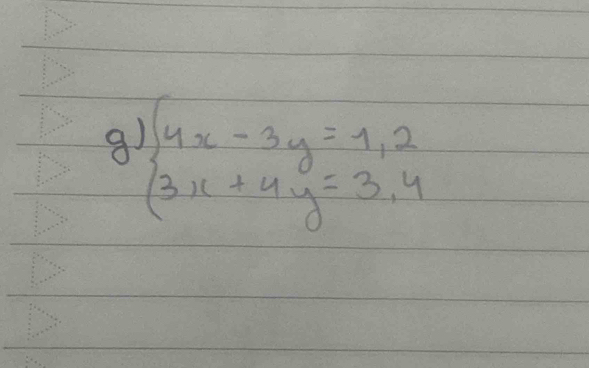 g) { 4x - 3y = 1,2
3x + 4y = 3,4